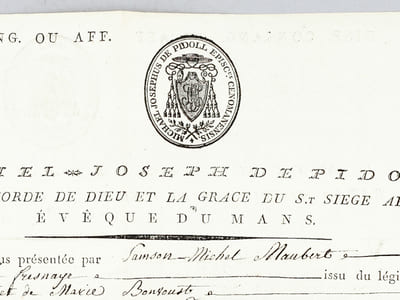 NG. OU AFF.
MICHAEL JOSEPHUS DE PIDOLL EPISC.us CENOMANENSIS
HEL JOSEPH DE PIDO
CORDE DE DIEU ET LA GRACE DU S.T SIEGE A
ÉVÊQUE DU MANS.
us présentée par Samson-Michel Maubert
Fresnaye issu du légi
et de Marie Bonvoust